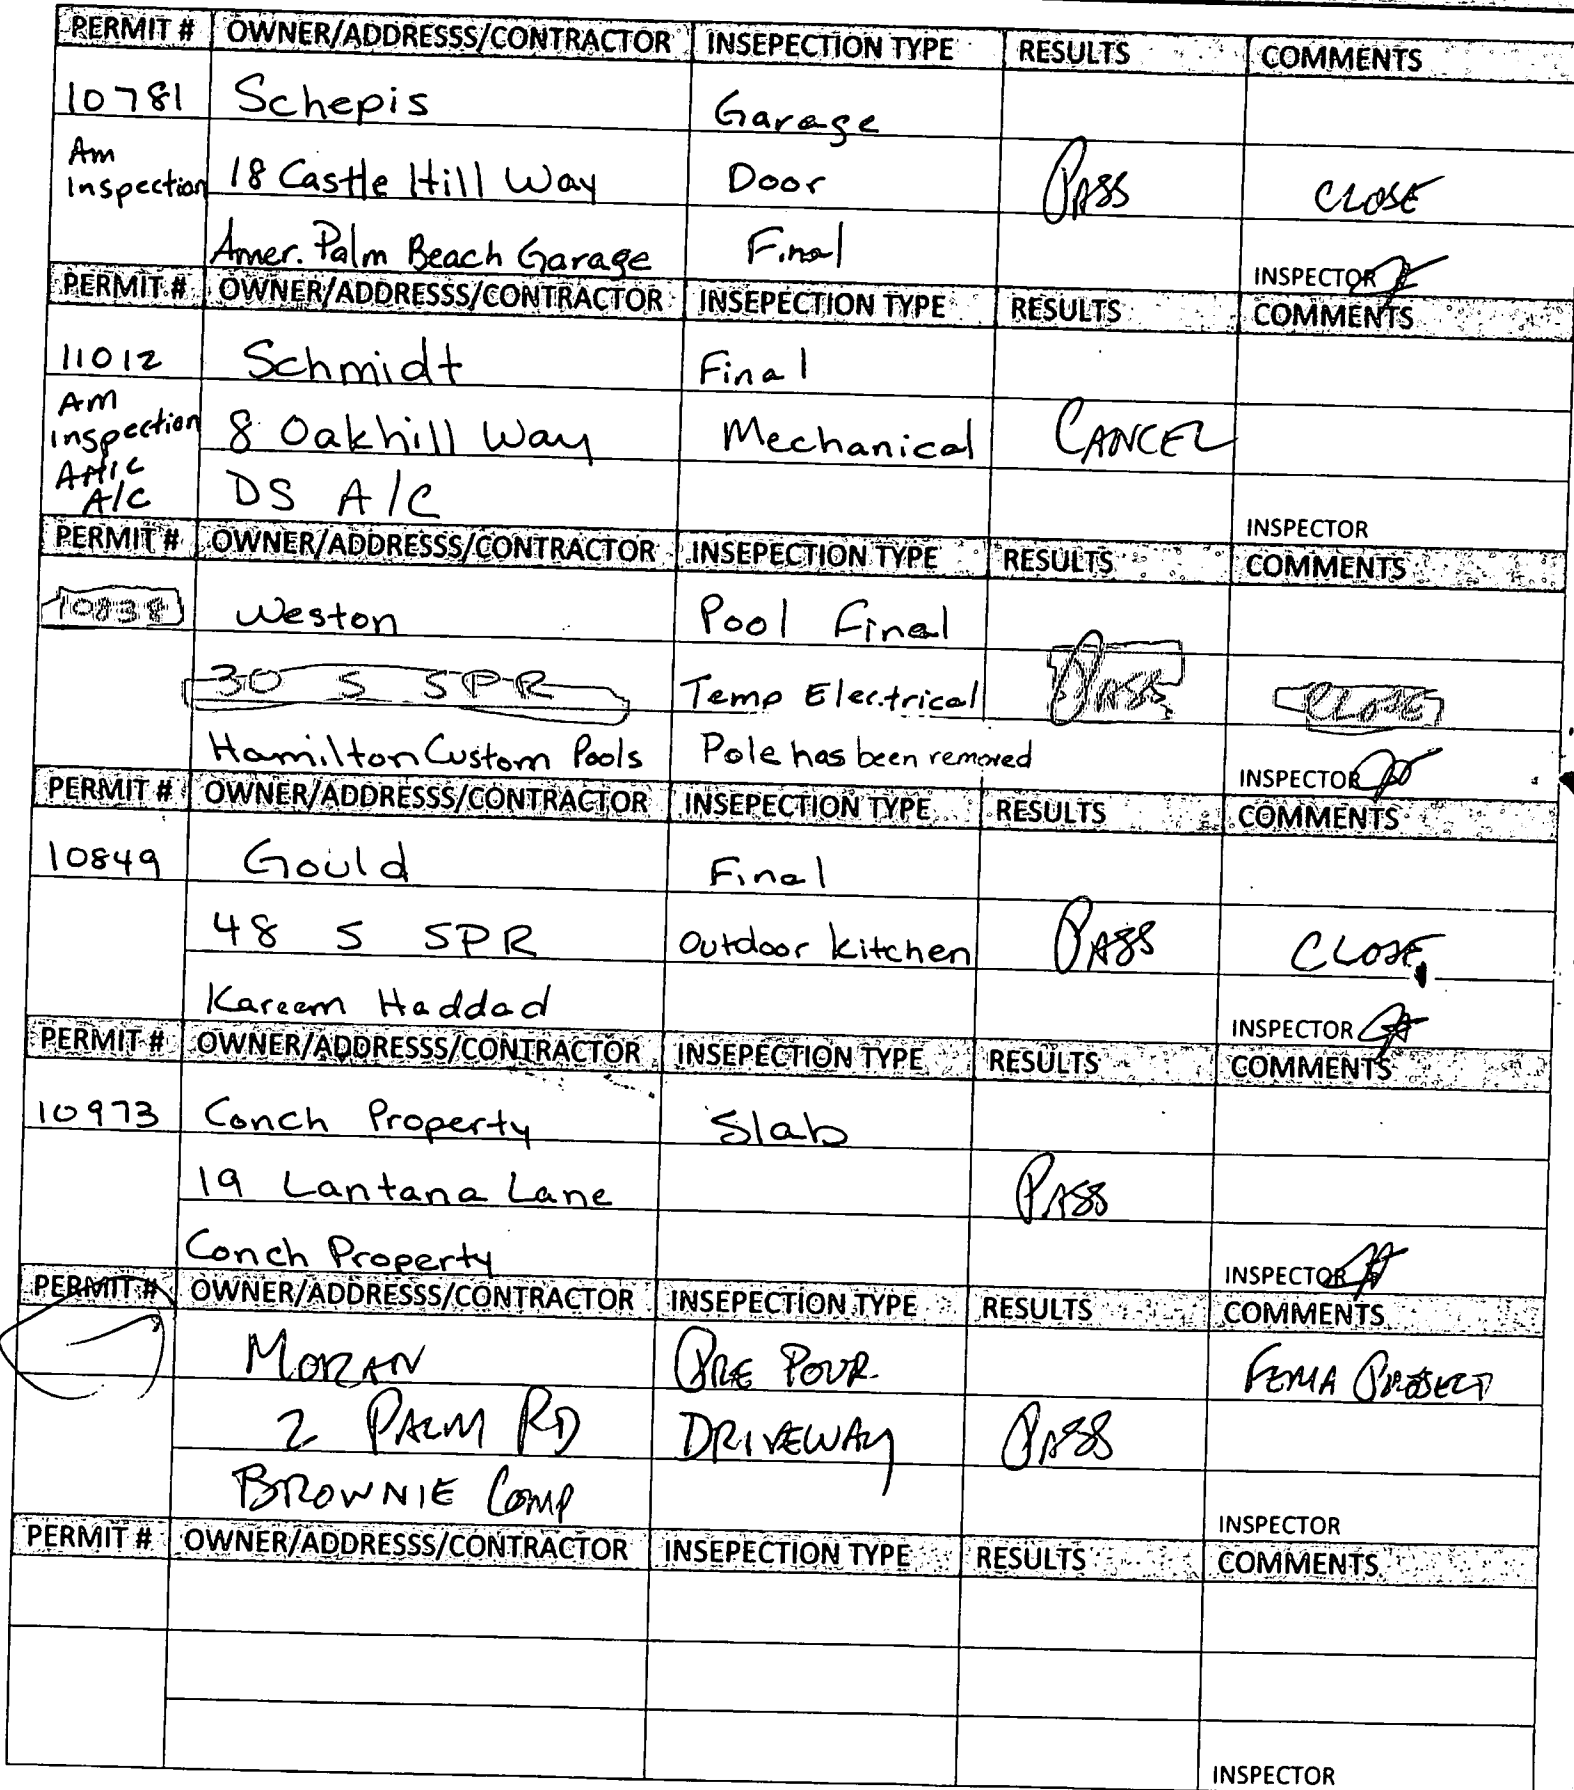 PERMIT # OWNER/ADDRESSS/CONTRACTOR INSEPECTION TYPE RESULTS COMMENTS
10781 Schepis Garage
Am Inspection 18 Castle Hill Way Door PASS CLOSE
Amer. Palm Beach Garage Final INSPECTOR
PERMIT # OWNER/ADDRESSS/CONTRACTOR INSEPECTION TYPE RESULTS COMMENTS
11012 Schmidt Final
Am Inspection 8 Oakhill Way Mechanical CANCEL
Attic A/C DS A/C INSPECTOR
PERMIT # OWNER/ADDRESSS/CONTRACTOR INSEPECTION TYPE RESULTS COMMENTS
10838 Weston Pool Final
30 S SPR Temp Electrical PASS CLOSE
Hamilton Custom Pools Pole has been removed INSPECTOR
PERMIT # OWNER/ADDRESSS/CONTRACTOR INSEPECTION TYPE RESULTS COMMENTS
10849 Gould Final
48 S SPR Outdoor kitchen PASS CLOSE
Kareem Haddad INSPECTOR
PERMIT # OWNER/ADDRESSS/CONTRACTOR INSEPECTION TYPE RESULTS COMMENTS
10973 Conch Property Slab
19 Lantana Lane PASS
Conch Property INSPECTOR
PERMIT # OWNER/ADDRESSS/CONTRACTOR INSEPECTION TYPE RESULTS COMMENTS
MORAN PRE POUR FEMA PROJECT
2 PALM RD DRIVEWAY PASS
BROWNIE COMP INSPECTOR
PERMIT # OWNER/ADDRESSS/CONTRACTOR INSEPECTION TYPE RESULTS COMMENTS
INSPECTOR